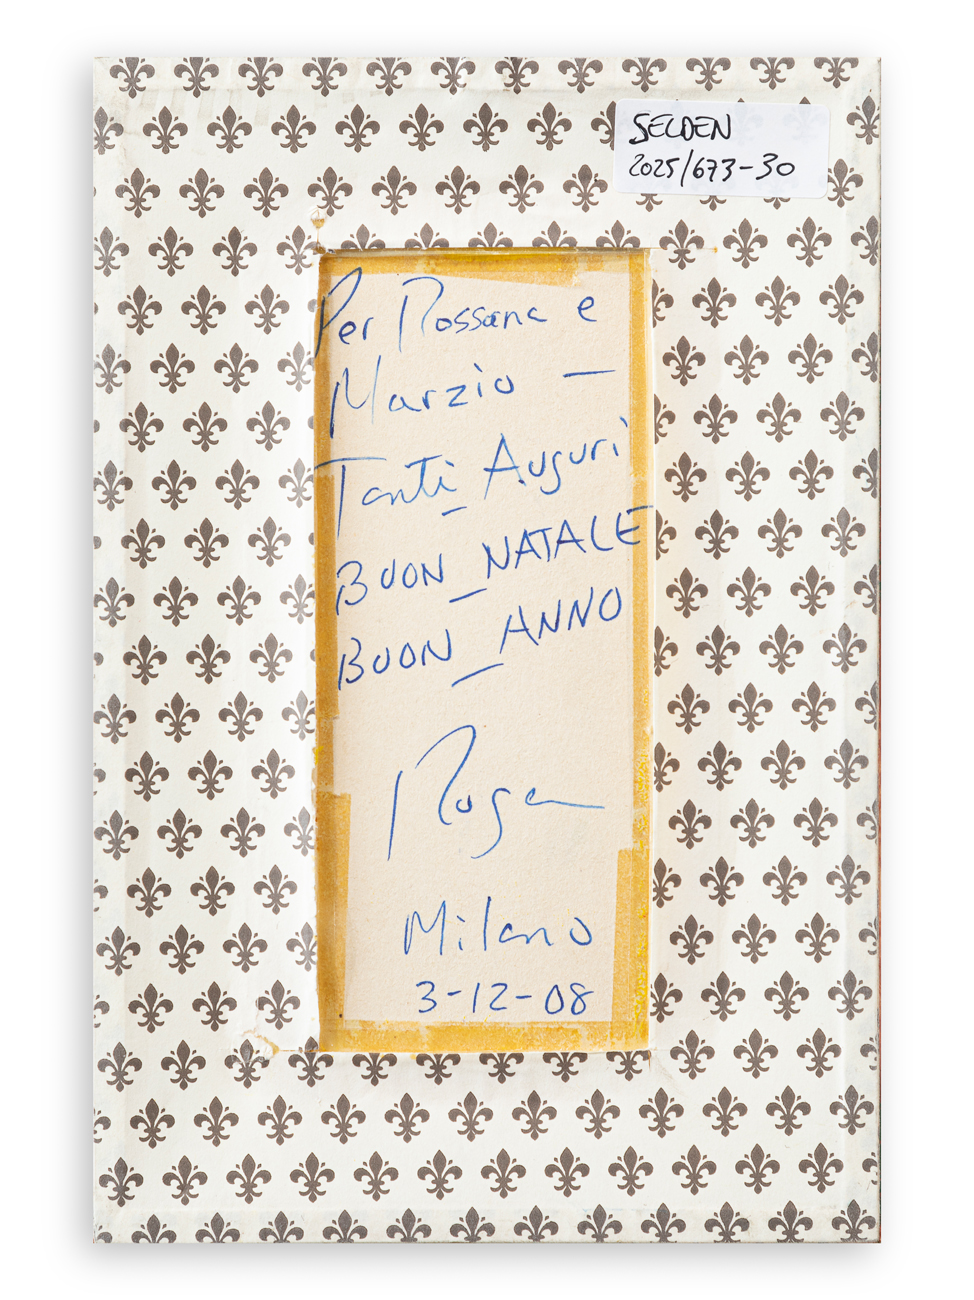 SELDEN
2025/673-30
Per Rossana e
Marzio —
Tanti Auguri
BUON NATALE
BUON ANNO
Milano
3-12-08